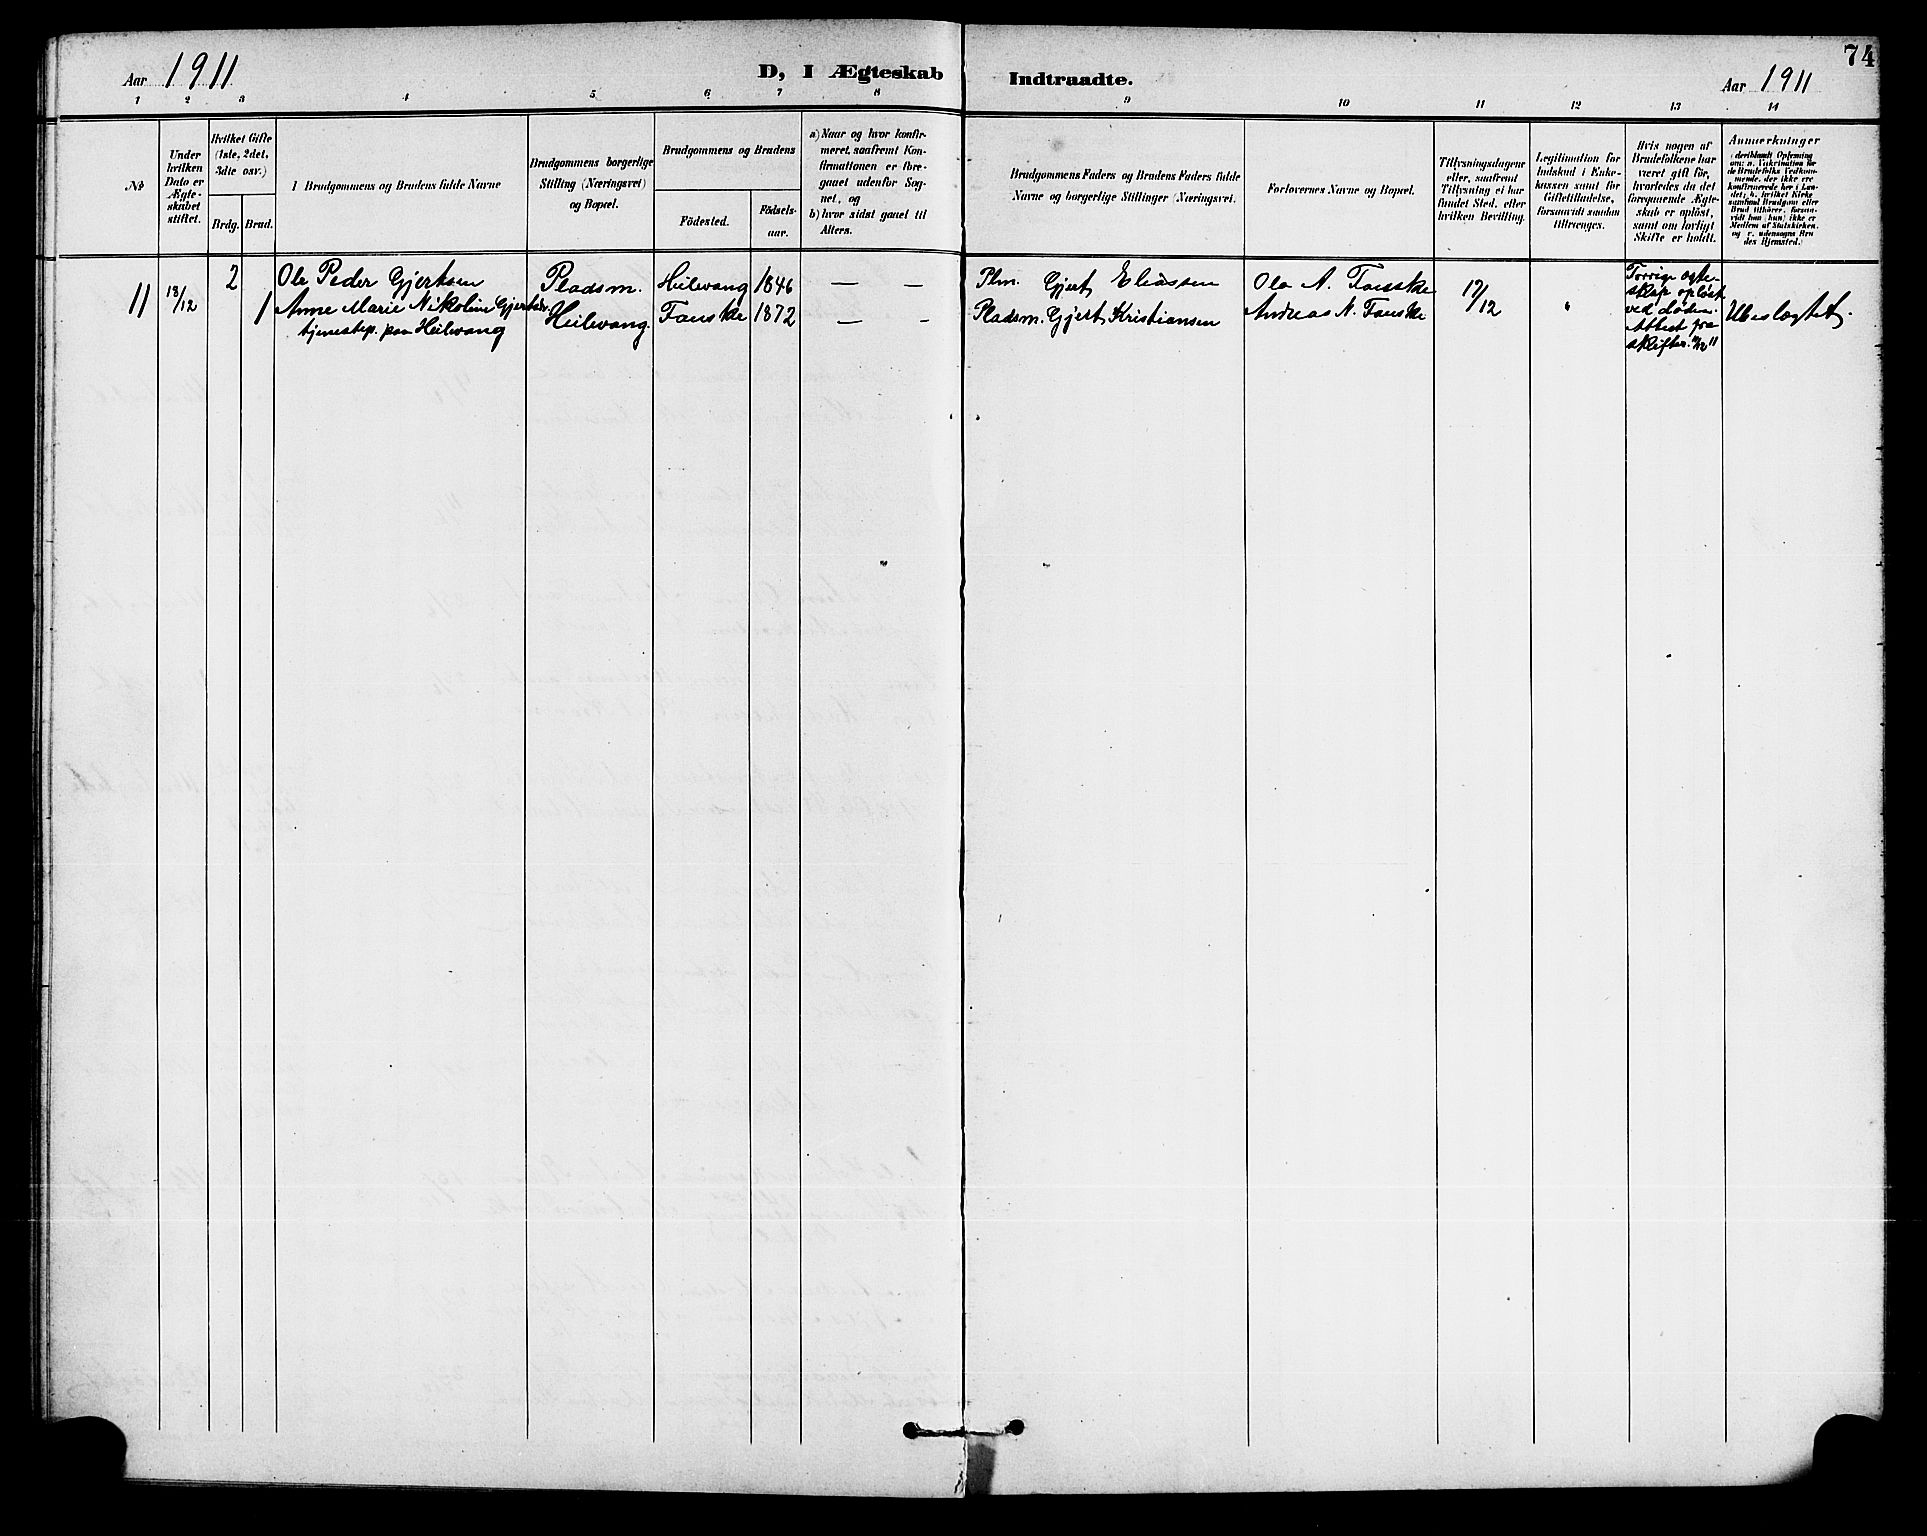 Aar 1911
D, I Ægteskab
Indtraadte.
Aar 1911
74
1 2 3 4 5 6 7 8 9 10 11 12 13 14
№
Under
hvilken
Dato er
Ægte-
skabet
stiftet.
Hvilket Gifte
(1ste, 2det,
3die osv.)
Brdg. Brud.
1 Brudgommens og Brudens fulde Navne
Brudgommens borgerlige
Stilling (Næringsvei)
og Bopæl.
Brudgommens og Brudens
Födested.
Födsels-
aar.
a) Naar og hvor konfir-
meret, saafremt Kon-
firmationen er fore-
gaaet udenfor Sog-
net, og
b) hvor sidst gaaet til
Alters.
Brudgommens Faders og Brudens Faders fulde
Navne og borgerlige Stillinger (Næringsvei.
Forlovernes Navne og Bopæl.
Tillysningsdagene
eller, saafremt
Tillysning ei har
fundet Sted, efter
hvilken Bevilling.
Legitimation for
Indskud i Enke-
kassen samt for
Giftetilladelse,
forsaavidt saadan
tiltrænges.
Hvis nogen af
Brudefolkene har
været gift för,
hvorledes da det
foregaaende Ægte-
skab er oplöst,
samt om lovligt
Skifte er holdt.
Anmerkninger
(deriblandt Oplysning
om: a. Vakcination for
de Brudefolks Vedkom-
mende, der ikke ere
konfirmerede her i Lan-
det; b. hvilket Kirke-
samfund Brudgom eller
Brud tilhörer, forsaa-
vidt han (hun) ikke er
Medlem af Statskirken,
og c. udensogns Bru-
des Hjemsted.)
11 18/12 2 Ole Peder Gjertsen Pladsm. Heilwang 1846 — — Plm. Gjert Eliassen Ole A. Fauske 17/12 "
1 Anne Marie Nikoline Gjertsdr. Heilwang. Fauske 1872 — — Pladsm. Gjert Kristiansen Andreas N. Fauske
tjenestep. paa Heilwang
Forrige ægte-
skap opløst
ved døden.
Attest fra
skifter. 11/12 11
Ubeslægtet.